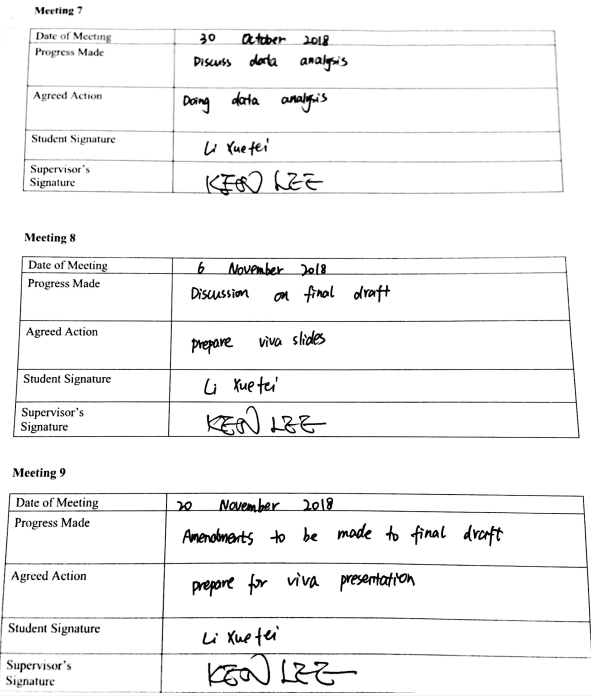 Meeting 7
Date of Meeting 30 October 2018
Progress Made Discuss data analysis
Agreed Action Doing data analysis
Student Signature Li Xuefei
Supervisor's
Signature KEN LEE
Meeting 8
Date of Meeting 6 November 2018
Progress Made Discussion on final draft
Agreed Action prepare viva slides
Student Signature Li Xuefei
Supervisor's
Signature KEN LEE
Meeting 9
Date of Meeting 20 November 2018
Progress Made Amendments to be made to final draft
Agreed Action prepare for viva presentation
Student Signature Li Xuefei
Supervisor's
Signature KEN LEE